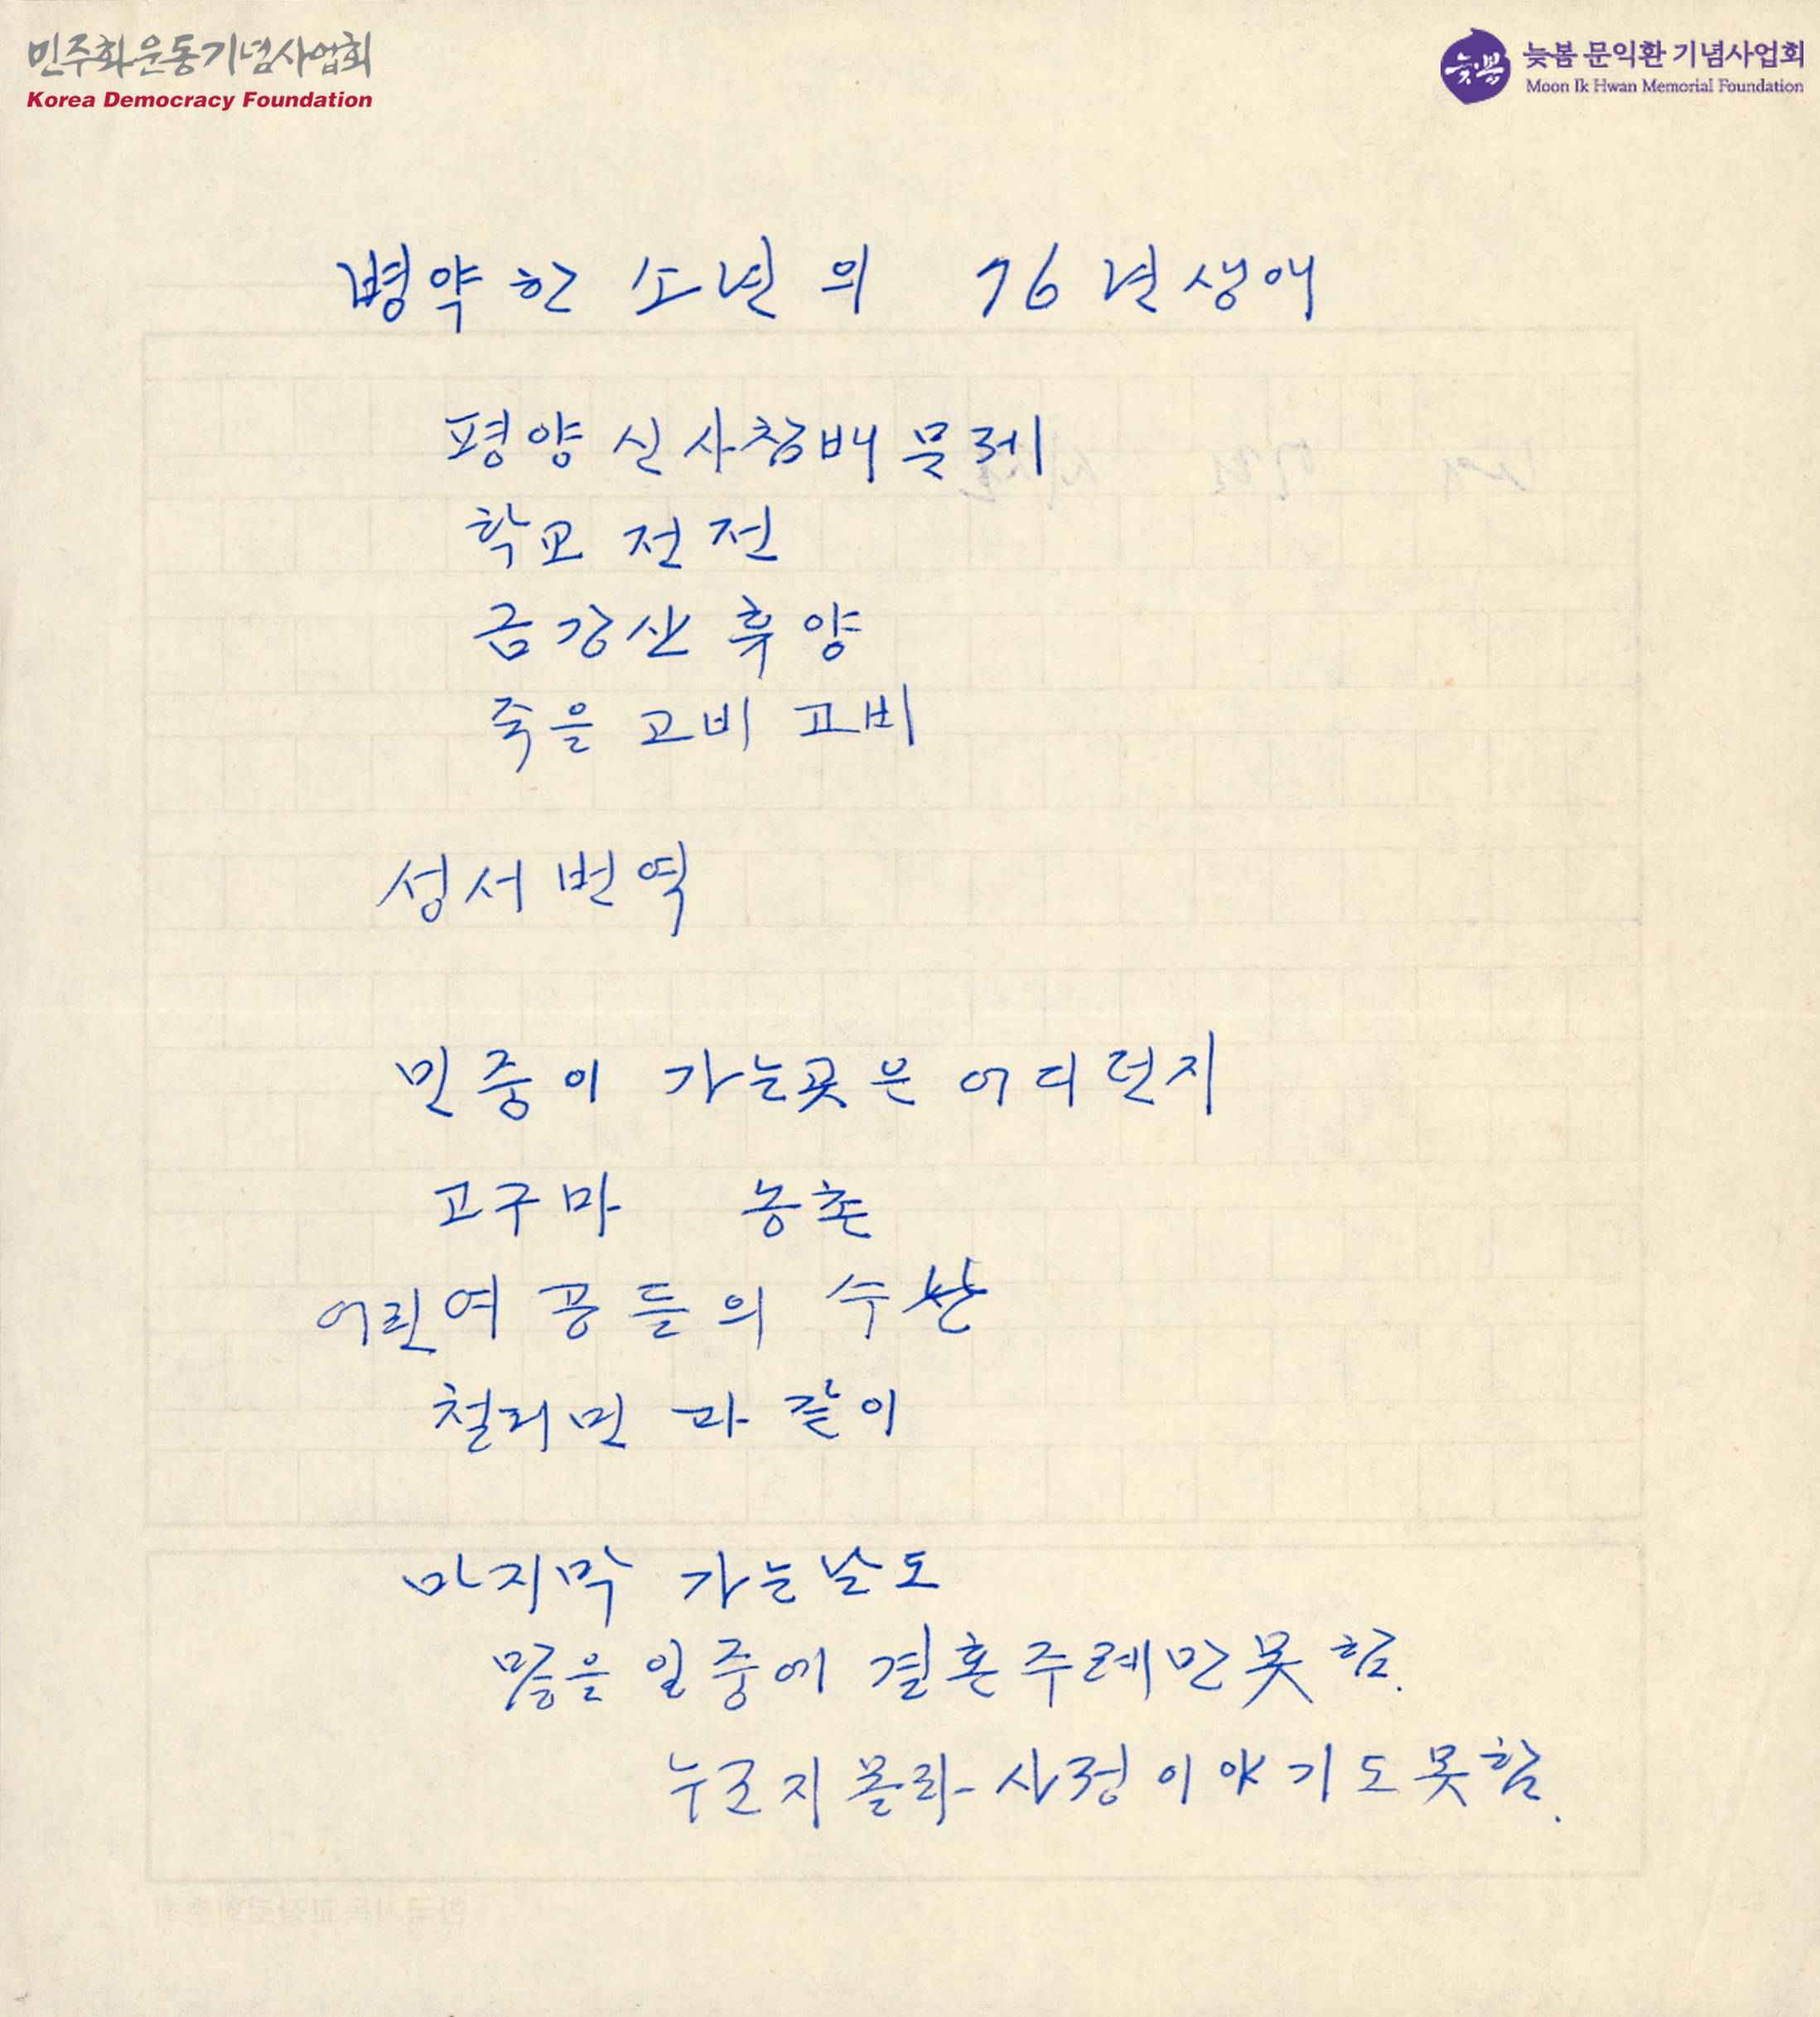 민주화운동기념사업회
Korea Democracy Foundation
늦봄
늦봄 문익환 기념사업회
Moon Ik Hwan Memorial Foundation
병약한 소년의 76년생애
평양 신사참배 문제
학교 전전
금강산 휴양
죽을 고비 고비
성서번역
민중이 가는곳은 어디던지
고구마 농촌
어린여공들의
철리민 과 같이
마지막 가는날도
많은 일중에 결혼주례만 못함.
누군지 몰라 사정이야기도 못함.